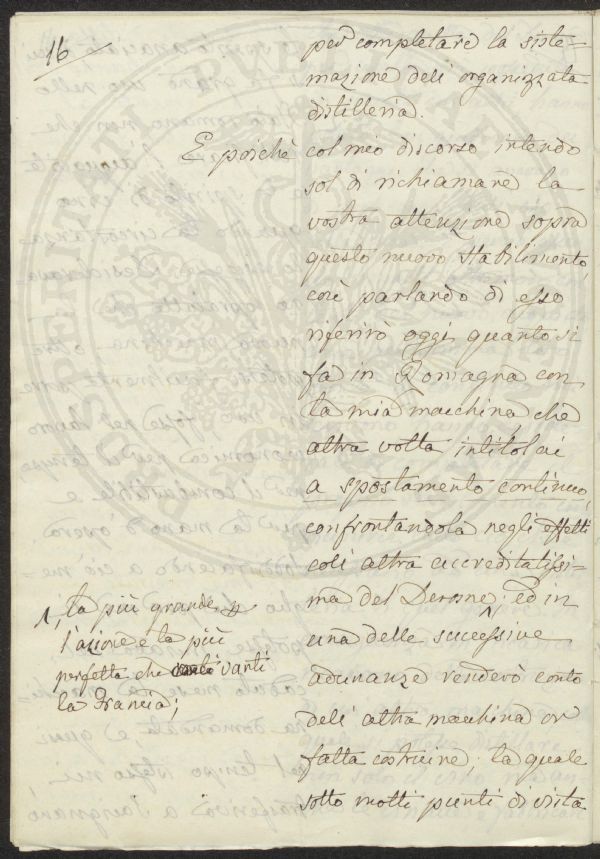 16
per completare la siste=
mazione dell'organizzata
distilleria.
E poichè col mio discorso intendo
sol di richiamare la
vostra attenzione sopra
questo nuovo stabilimento,
così parlando di esso
riferirò oggi quanto si
fa in Romagna con
la mia macchina, che
altra volta intitolai
a spostamento continuo,
confrontandola negli effetti
coll'altra accreditatissi=
ma del Derosne; ed in
una delle successive
adunanze renderò conto
dell'altra macchina or
fatta costruire; la quale
sotto molti punti di vista
la più grande
l'azione e la più
perfetta che vanti
la Francia;